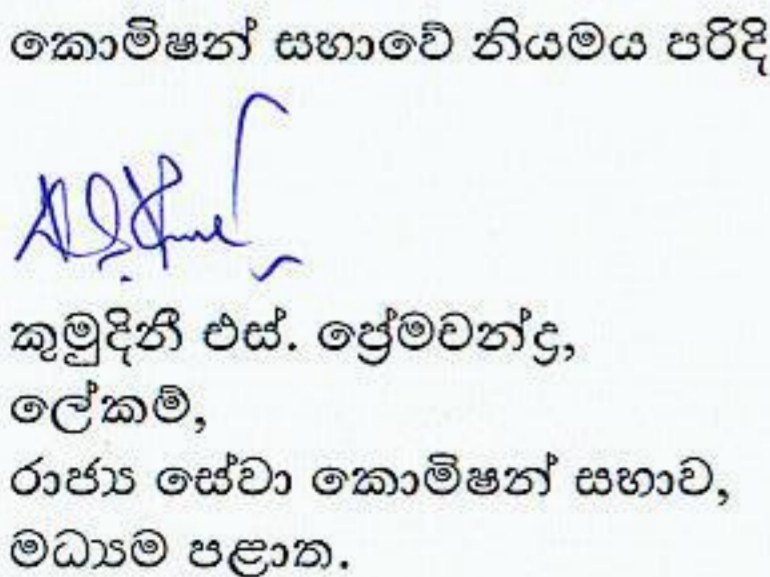 කොමිෂන් සභාවේ නියමය පරිදි
කුමුදිනී එස්. ප්‍රේමචන්ද්‍ර,
ලේකම්,
රාජ්‍ය සේවා කොමිෂන් සභාව,
මධ්‍යම පළාත.